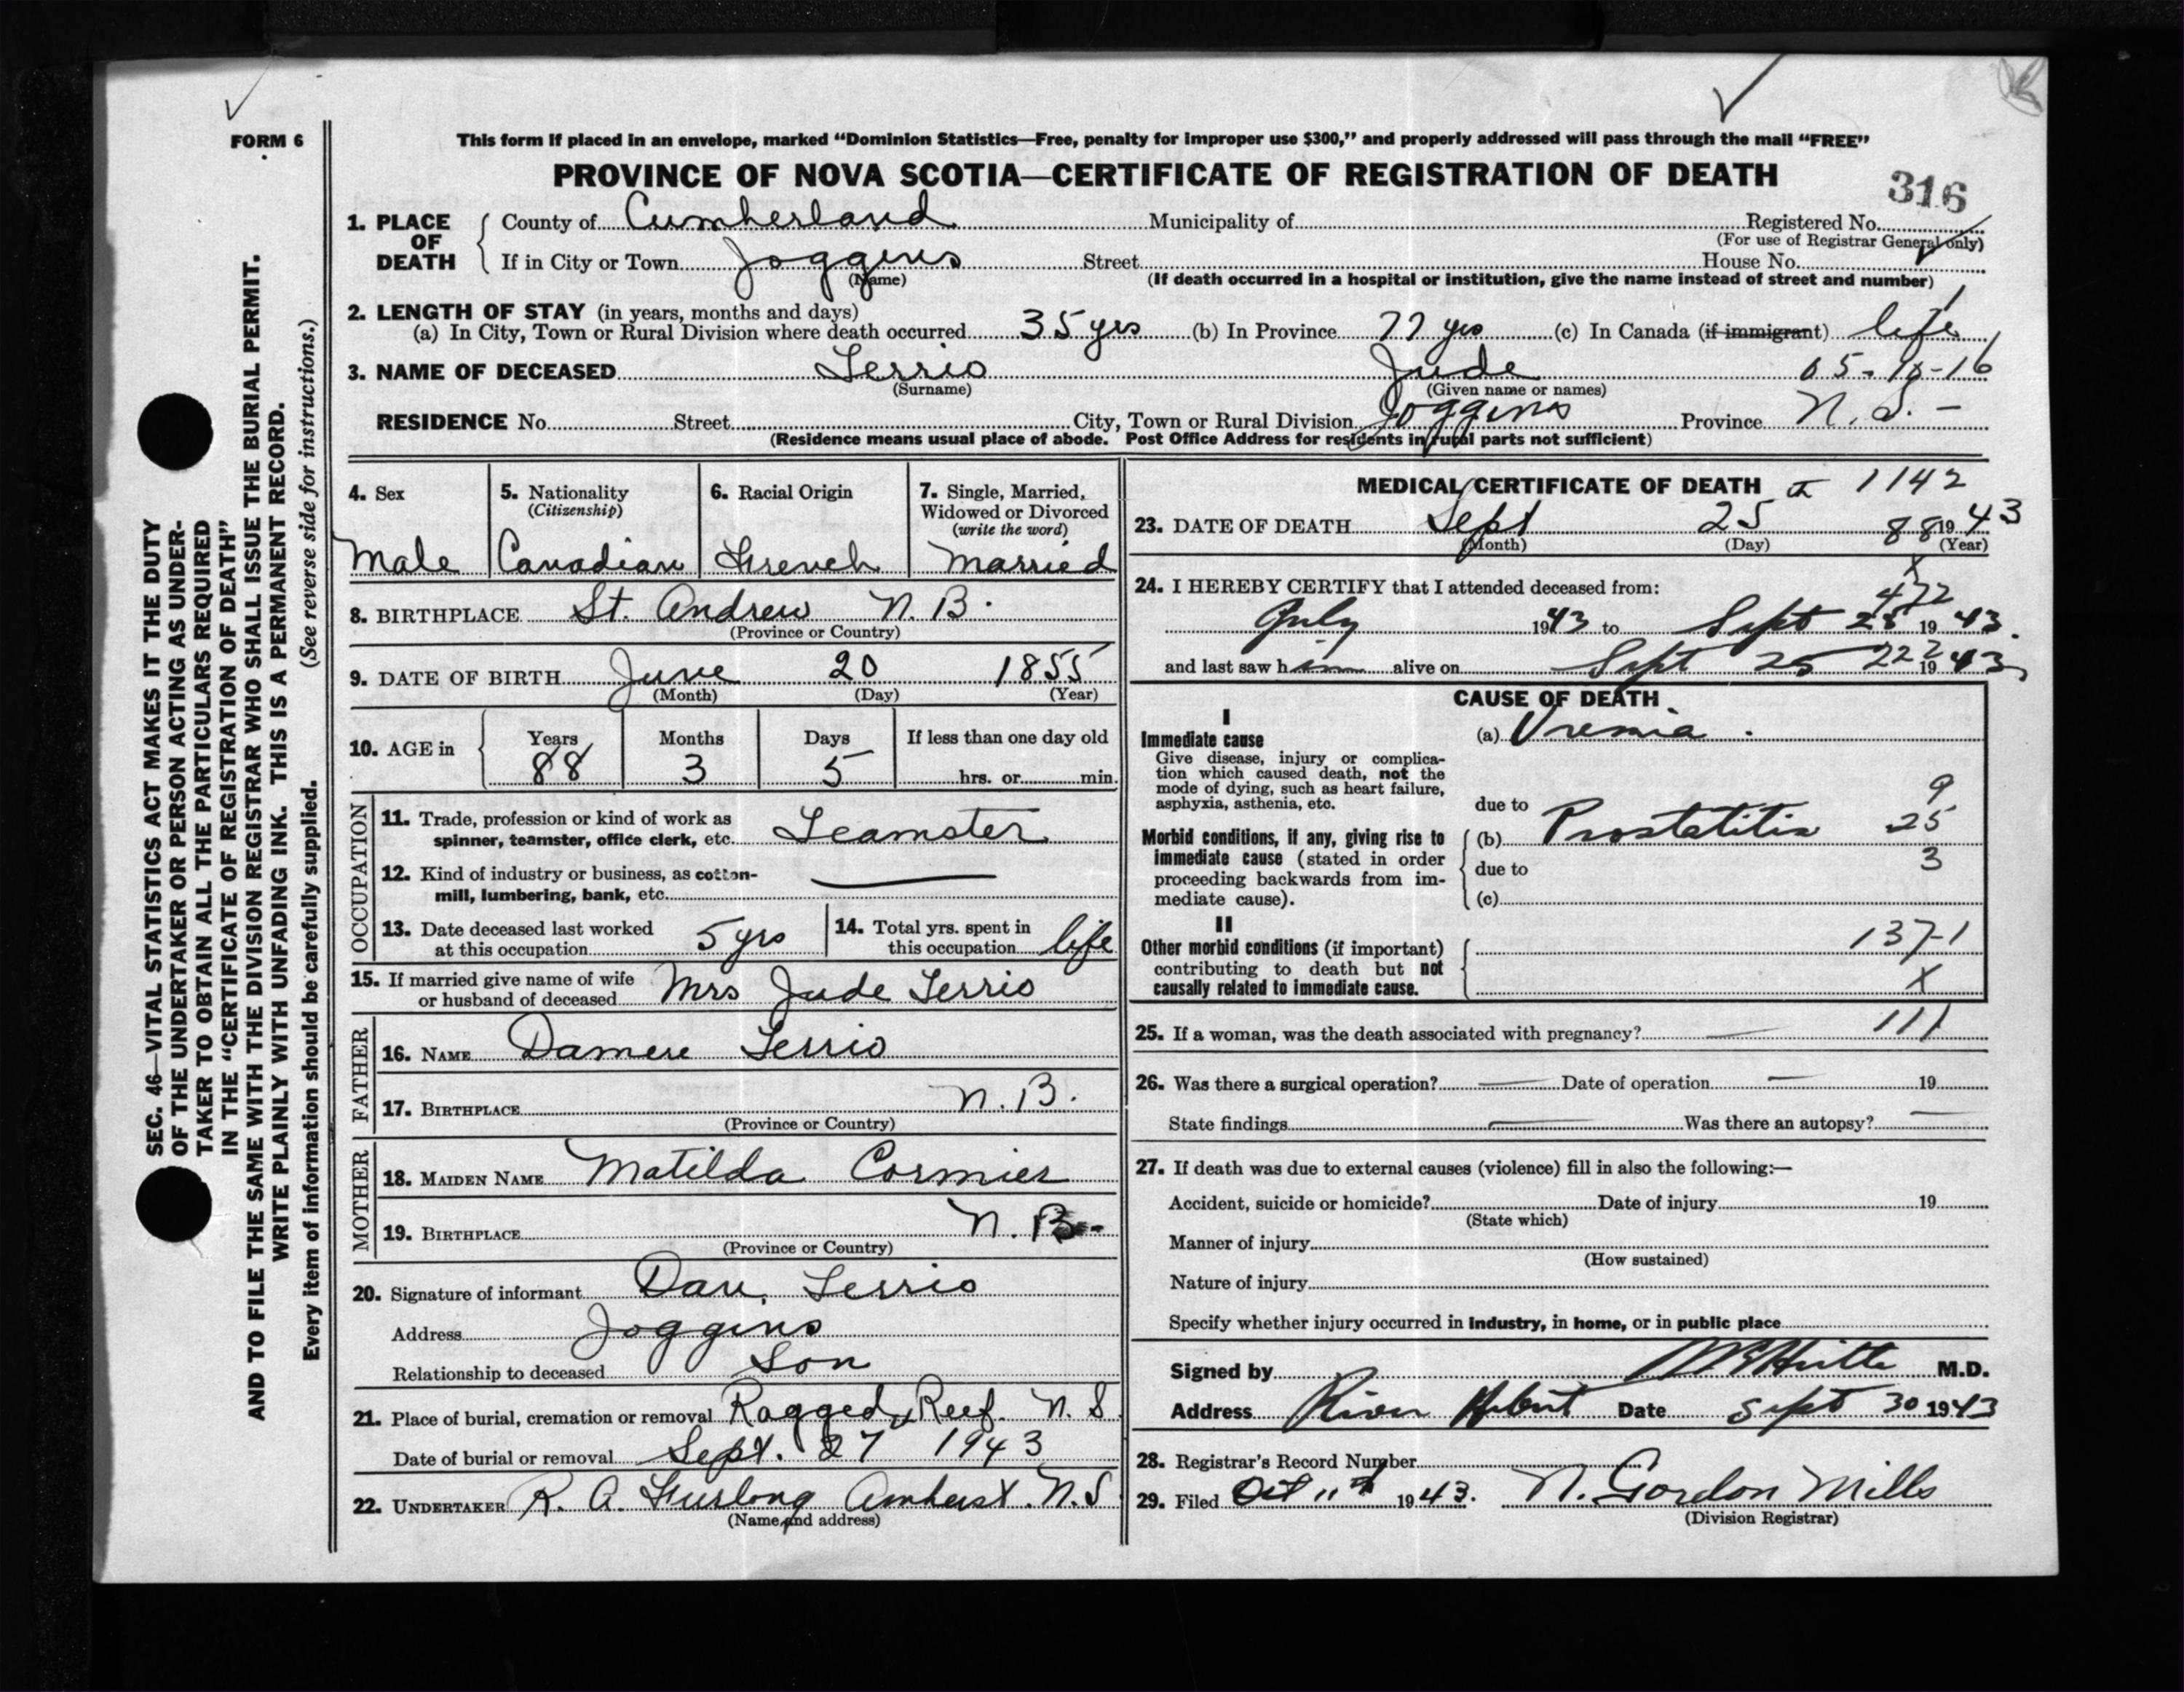 FORM 6
This form if placed in an envelope, marked “Dominion Statistics—Free, penalty for improper use $300,” and properly addressed will pass through the mail “FREE”
PROVINCE OF NOVA SCOTIA—CERTIFICATE OF REGISTRATION OF DEATH
316
1. PLACE OF DEATH County of Cumberland Municipality of Registered No.
(For use of Registrar General only)
If in City or Town Joggins Street House No.
(Name) (If death occurred in a hospital or institution, give the name instead of street and number)
2. LENGTH OF STAY (in years, months and days)
(a) In City, Town or Rural Division where death occurred 35 yrs (b) In Province 77 yrs (c) In Canada (if immigrant) life
3. NAME OF DECEASED Terrio Jude
(Surname) (Given name or names)
RESIDENCE No. Street City, Town or Rural Division Joggins Province N.S. -
(Residence means usual place of abode. Post Office Address for residents in rural parts not sufficient)
4. Sex 5. Nationality (Citizenship) 6. Racial Origin 7. Single, Married, Widowed or Divorced (write the word)
Male Canadian French Married
8. BIRTHPLACE St. Andrew N.B.
(Province or Country)
9. DATE OF BIRTH June 20 1855
(Month) (Day) (Year)
10. AGE in Years Months Days If less than one day old
88 3 5 hrs. or min.
OCCUPATION
11. Trade, profession or kind of work as
spinner, teamster, office clerk, etc. Teamster
12. Kind of industry or business, as cotton-
mill, lumbering, bank, etc.
13. Date deceased last worked
at this occupation 5 yrs
14. Total yrs. spent in
this occupation life
15. If married give name of wife
or husband of deceased Mrs Jude Terrio
FATHER
16. NAME Damere Terrio
17. BIRTHPLACE N.B.
(Province or Country)
MOTHER
18. MAIDEN NAME Matilda Cormier
19. BIRTHPLACE N.B.
(Province or Country)
20. Signature of informant Dan. Terrio
Address Joggins
Relationship to deceased Son
21. Place of burial, cremation or removal Ragged Reef. N.S
Date of burial or removal Sept. 27 1943
22. UNDERTAKER R. A. Furlong Amherst. N.S
(Name and address)
MEDICAL CERTIFICATE OF DEATH 1142
23. DATE OF DEATH Sept 25 88 1943
(Month) (Day) (Year)
24. I HEREBY CERTIFY that I attended deceased from:
July 1943 to Sept 25 1943.
and last saw him alive on Sept 25 222 1943
CAUSE OF DEATH
I
Immediate cause
Give disease, injury or complica-
tion which caused death, not the
mode of dying, such as heart failure,
asphyxia, asthenia, etc.
(a) Uremia
due to 9
Morbid conditions, if any, giving rise to
immediate cause (stated in order
proceeding backwards from im-
mediate cause).
(b) Prostatitis 25
due to 3
(c)
II
Other morbid conditions (if important)
contributing to death but not
causally related to immediate cause.
137-1
X
25. If a woman, was the death associated with pregnancy? 111
26. Was there a surgical operation? Date of operation 19
State findings Was there an autopsy?
27. If death was due to external causes (violence) fill in also the following:—
Accident, suicide or homicide? Date of injury 19
(State which)
Manner of injury
(How sustained)
Nature of injury
Specify whether injury occurred in industry, in home, or in public place
Signed by M.D.
Address River Hebert Date Sept 30 1943
28. Registrar's Record Number
29. Filed Oct 11th 1943. N. Gordon Mills
(Division Registrar)
SEC. 46—VITAL STATISTICS ACT MAKES IT THE DUTY
OF THE UNDERTAKER OR PERSON ACTING AS UNDER-
TAKER TO OBTAIN ALL THE PARTICULARS REQUIRED
IN THE “CERTIFICATE OF REGISTRATION OF DEATH”
AND TO FILE THE SAME WITH THE DIVISION REGISTRAR WHO SHALL ISSUE THE BURIAL PERMIT.
WRITE PLAINLY WITH UNFADING INK. THIS IS A PERMANENT RECORD.
Every item of information should be carefully supplied. (See reverse side for instructions.)